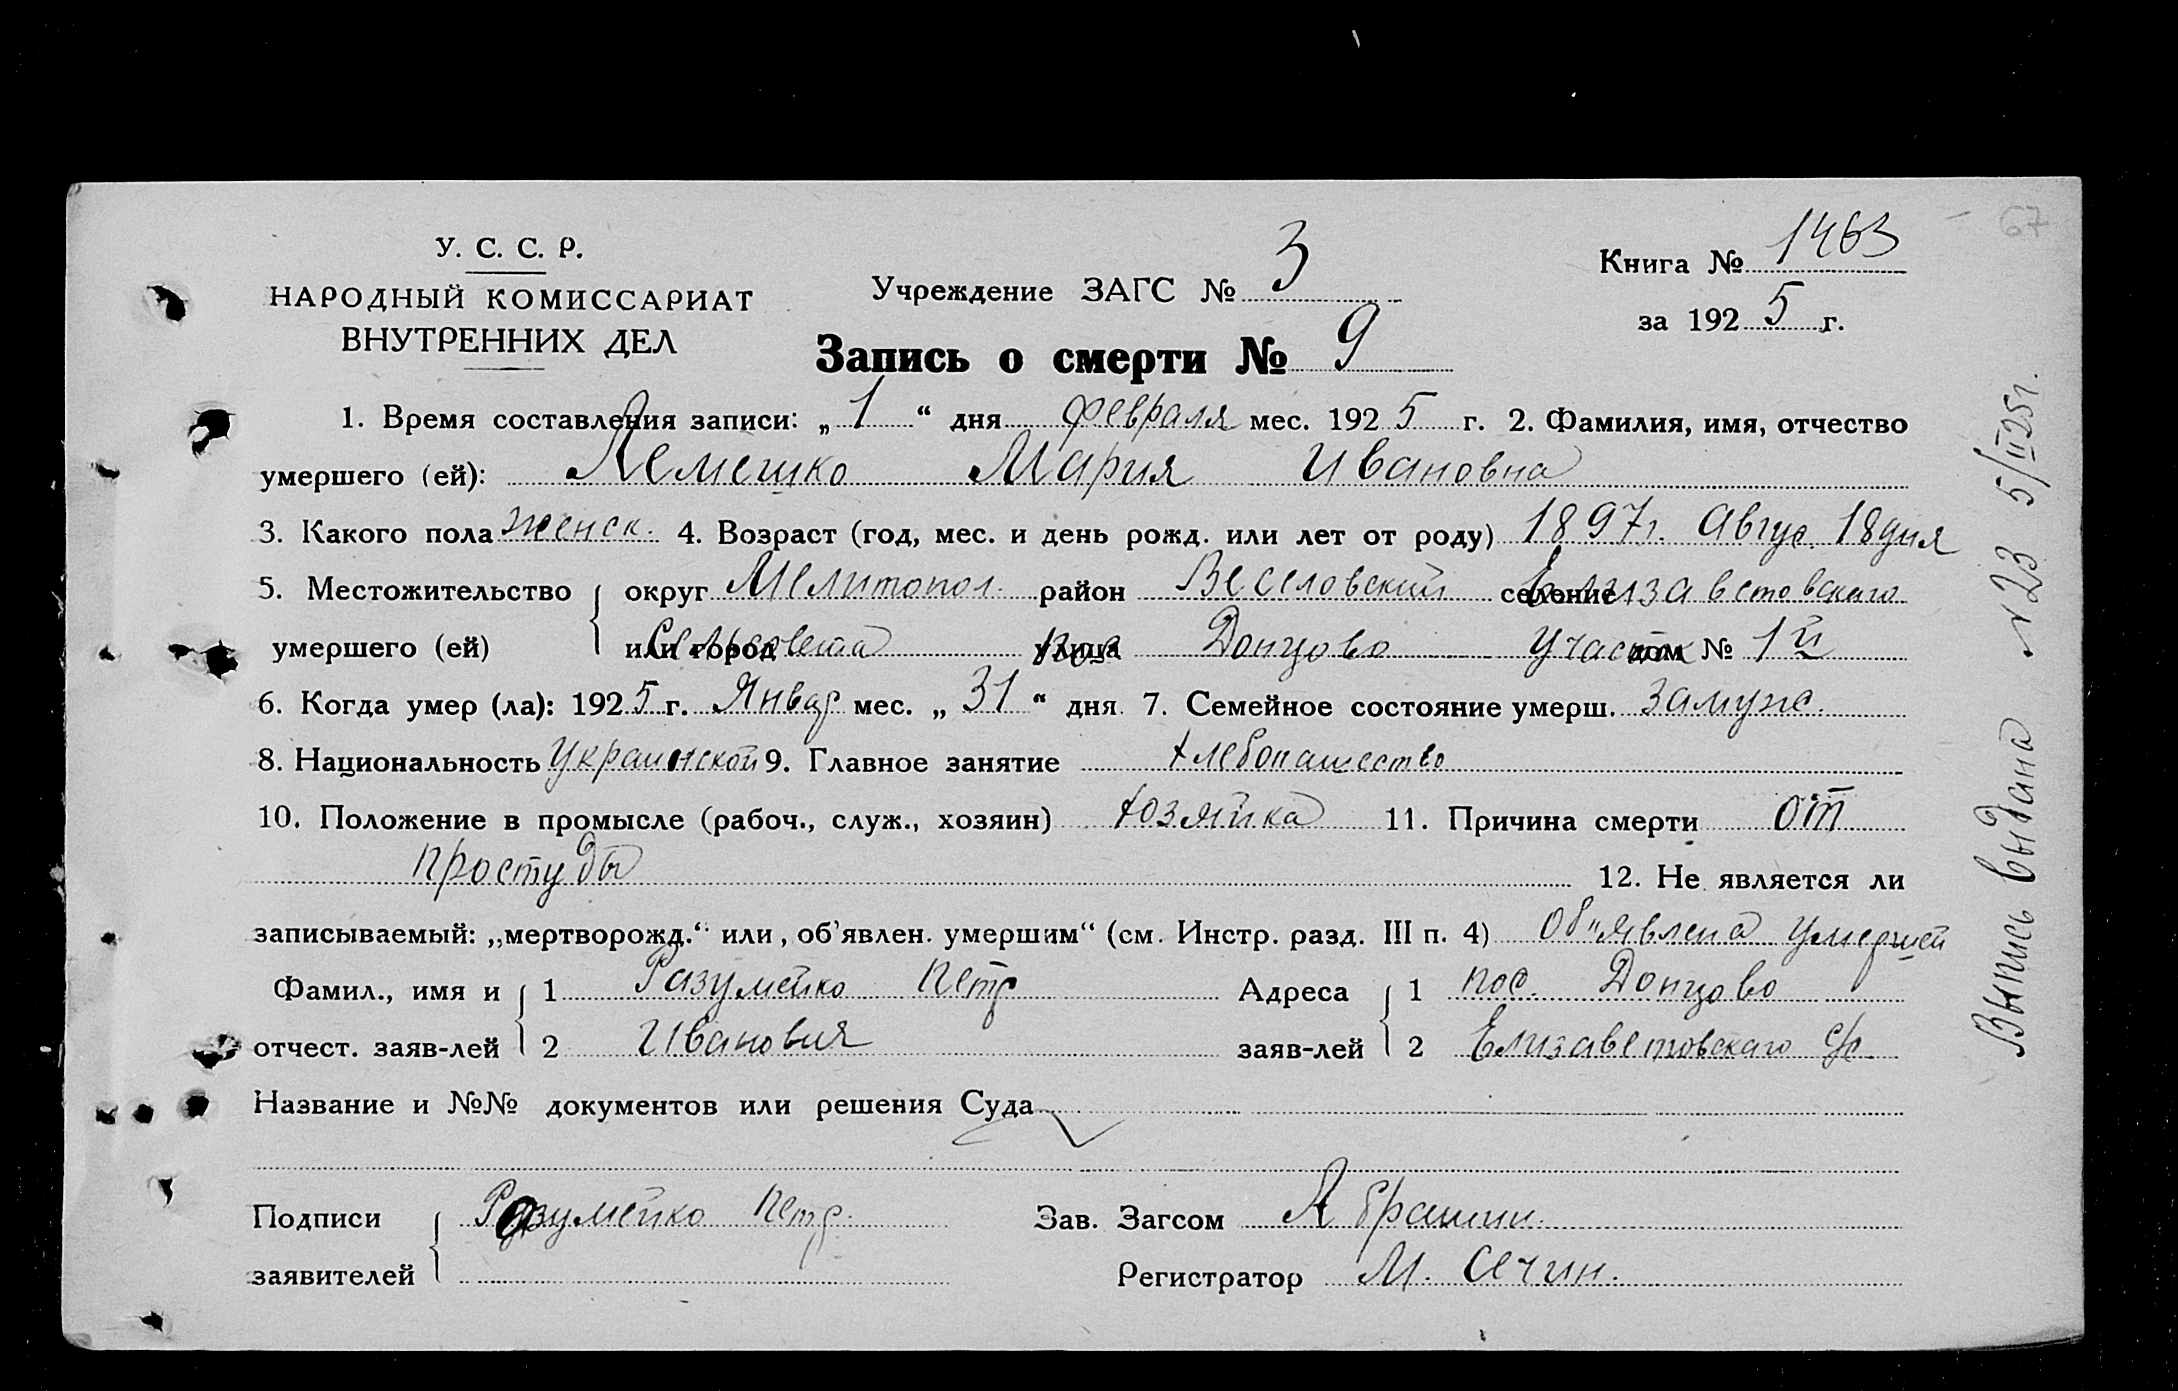 67
У. С. С. Р.
НАРОДНЫЙ КОМИССАРИАТ
ВНУТРЕННИХ ДЕЛ
Учреждение ЗАГС № 3
Книга № 1463
за 192 5 г.
Запись о смерти № 9
1. Время составления записи: „ 1 “ дня февраля мес. 192 5 г. 2. Фамилия, имя, отчество
умершего (ей): Лемешко Мария Ивановна
3. Какого пола женск. 4. Возраст (год, мес. и день рожд. или лет от роду) 1897г. Авгус. 18 дня
5. Местожительство округ Мелитопол. район Веселовский селение Елизаветовскаго
умершего (ей) или город Сельсовета улица пос. Донцово Участок дом № 1й
6. Когда умер (ла): 192 5 г. Январ мес. „ 31 “ дня 7. Семейное состояние умерш. замужс.
8. Национальность Украинской 9. Главное занятие хлебопашество
10. Положение в промысле (рабоч., служ., хозяин) хозяйка 11. Причина смерти от
простуды 12. Не является ли
записываемый: „мертворожд.“ или „об’явлен. умершим“ (см. Инстр. разд. III п. 4) Об"явлена умершей
Фамил., имя и 1 Разумейко Петр Адреса 1 пос. Донцово
отчест. заяв-лей 2 Иванович заяв-лей 2 Елизаветовскаго с/с.
Название и №№ документов или решения Суда
Подписи Разумейко Петр. Зав. Загсом Абрашин
заявителей Регистратор М. Сечин.
Выпись выдана №23 5/II 25г.